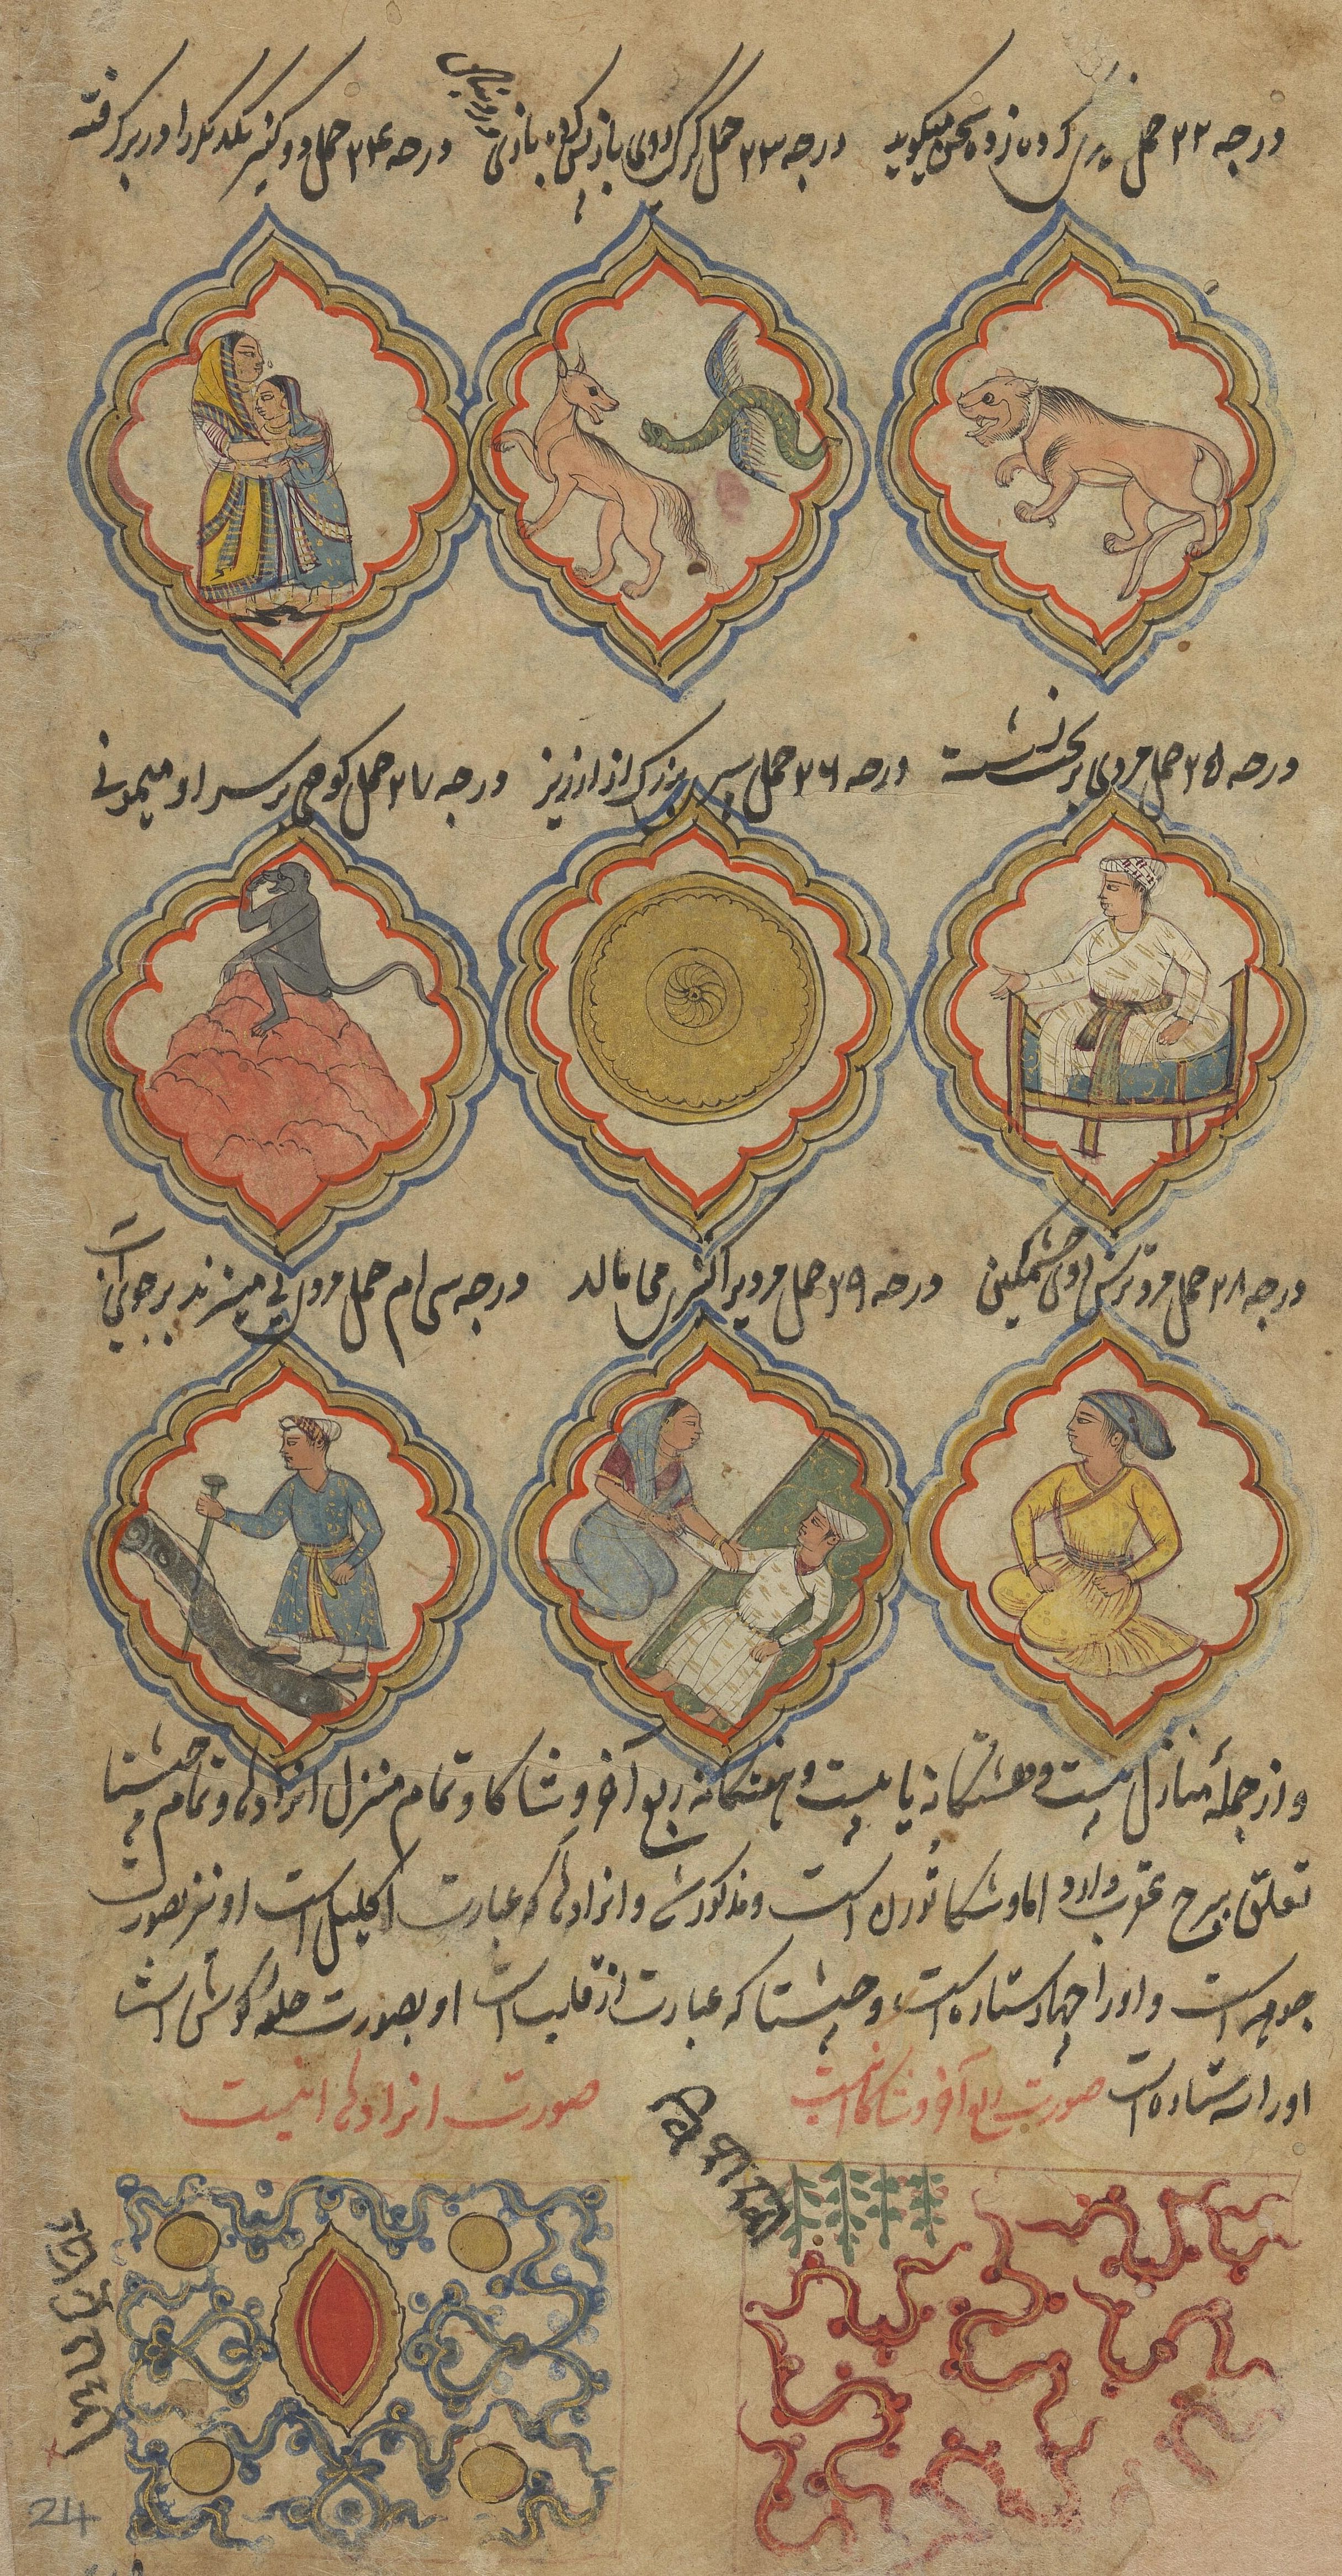 درجه ۲۲ حمل کرده زو سخن میکوید درجه ۲۳ حمل کرک روی باز پس کرده بازی درجه ۲۴ حمل دو کنیز یکدیکر را در بر کرفته
درجه ۲۵ حمل مردی بر تخت نشسته درجه ۲۶ حمل سپری بزرک از ارزیز درجه ۲۷ حمل کوهی بر سر او میمونی
درجه ۲۸ حمل مرد ترش روی خشمکین درجه ۲۹ حمل مرد بر می مالد درجه سی ام حمل مرد بیل میزند بر جوی آب
و از جملهٔ منازل بیست و هشتکانه یا بیست و هفتکانه ربع آخر وشاکا و تمام منزل انرادها و تمام جیشتا
تعلق ببرج عقرب دارد اما وشاکا تورن است و مذکور شد و انرادها که عبارت اکلیل است او نیز بصورت
جوهر است و او را چهار ستاره است و جیشتا که عبارت از قلب است او بصورت حلقهٔ کوش است
او را سه ستاره است صورت ربع آخر وشاکا اینست صورت انرادها اینست
24